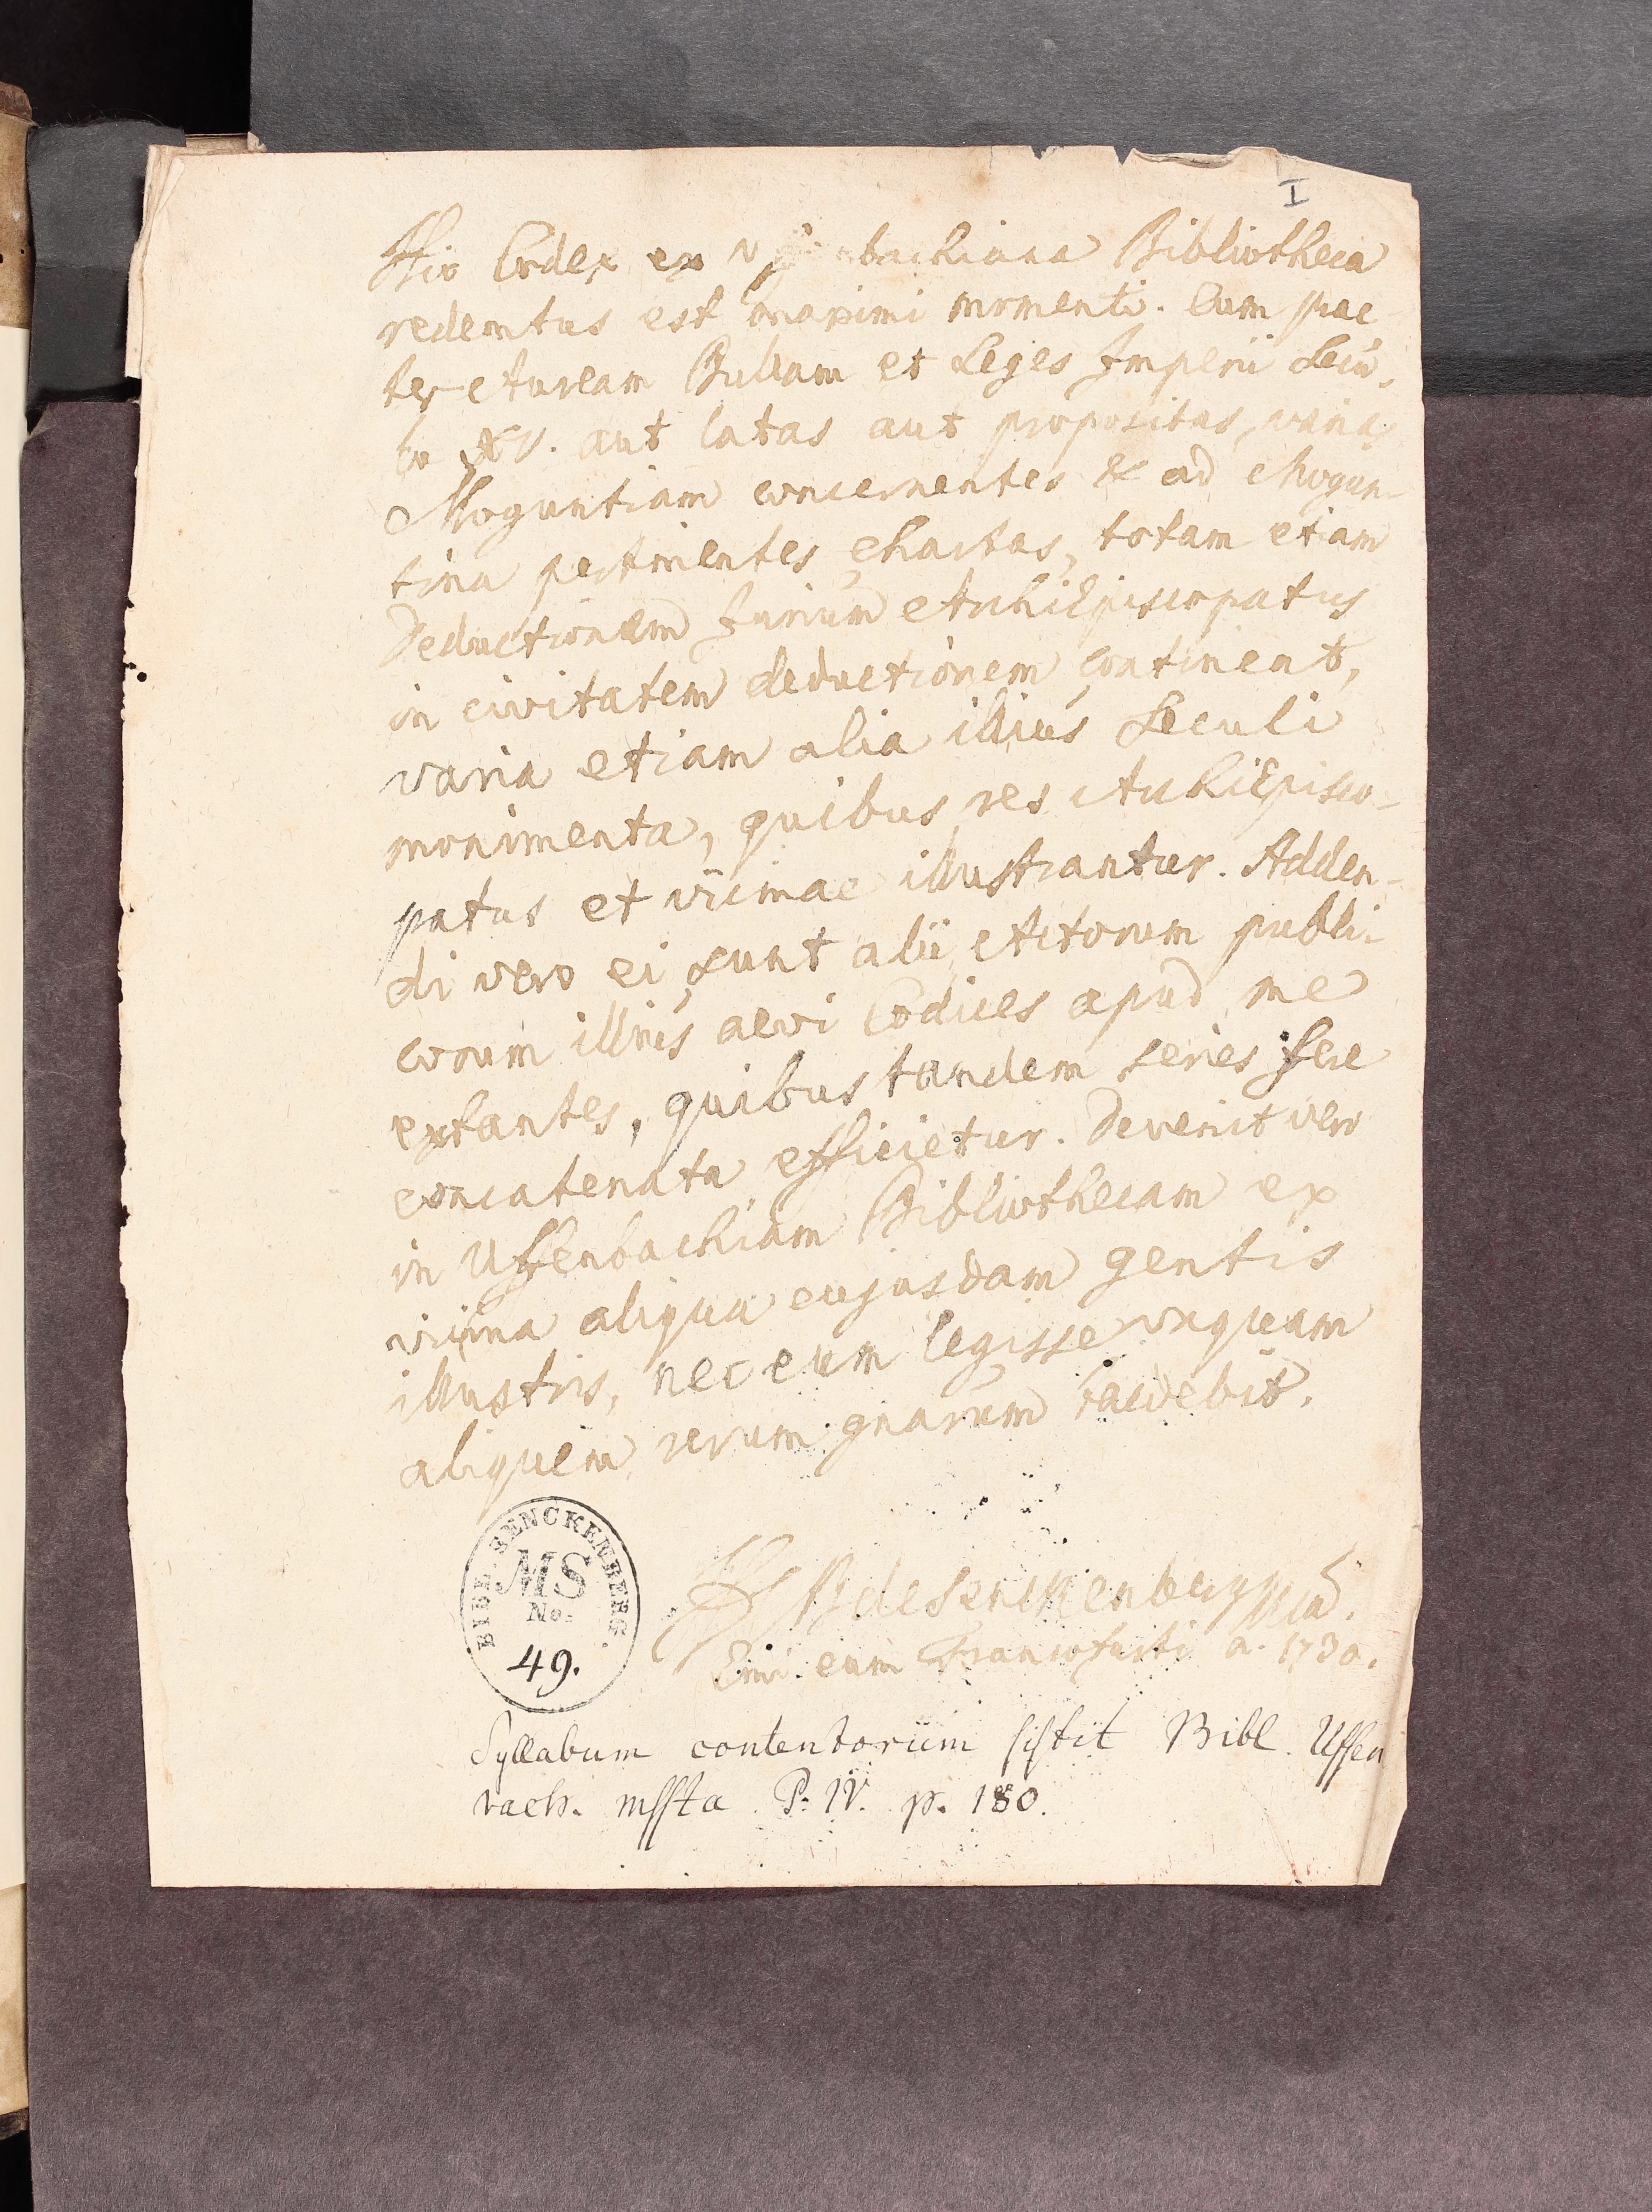 I
Hic Codex ex bachiana Bibliotheca
redemtus est maximi momenti. Cum prae-
ter Auream Bullam et Leges Imperii Secu-
lo XV. aut latas aut propositas, varias
Moguntiam concernentes & ad Mogun-
tina pertinentes chartas, totam etiam
Deductionem Jurium ArchiEpiscopatus
in civitatem deductionem contineat,
varia etiam alia illius Seculi
monimenta, quibus res ArchiEpisco-
patus et vicinae illustrantur. Adden-
di vero ei sunt alii Actorum publi-
corum illius aevi Codices apud me
extantes, quibus tandem series fere
concatenata efficietur. Devenit vero
in Uffenbachiam Bibliothecam ex
aliqua cujusdam gentis
illustris, nec eum legisse unquam
aliquem rerum gnarum taedebit.
de Senckenberg
Emi eum Francofurti a. 1730.
BIBL. SENCKENBERG.
MS
No.
49.
Syllabum contentorum sistit Bibl. Uffen
bach. mssta P. IV. p. 180.